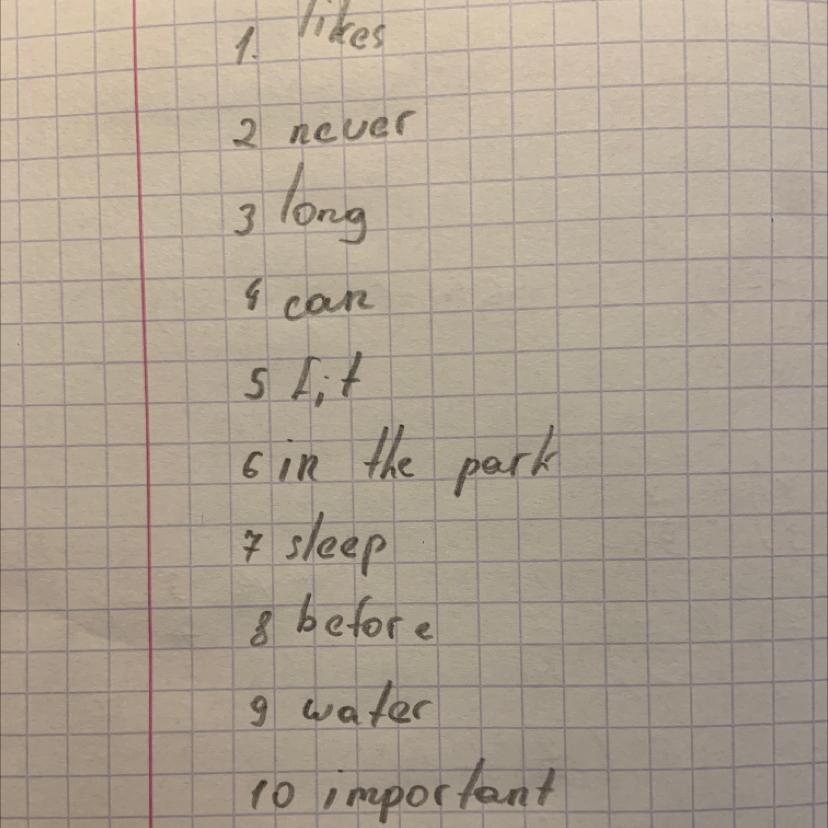 1. likes
2 never
3 long
4 can
5 fit
6 in the park
7 sleep
8 before
9 water
10 important